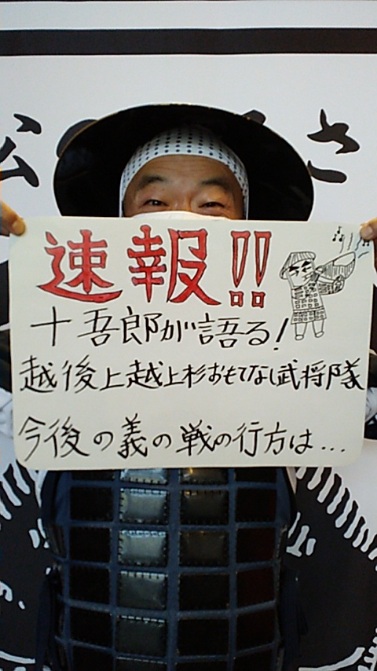 速報!!
十吾郎が語る!
越後上越上杉おもてなし武将隊
今後の義の戦の行方は...